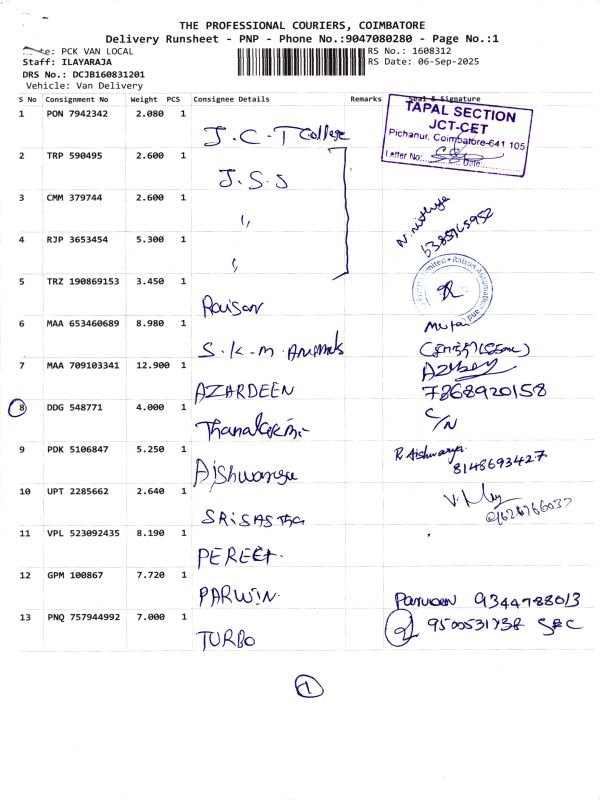 THE PROFESSIONAL COURIERS, COIMBATORE
Delivery Runsheet - PNP - Phone No.:9047080280 - Page No.:1
PCK VAN LOCAL
RS No.: 1608312
Staff: ILAYARAJA
RS Date: 06-Sep-2025
DRS No.: DCJB160831201
Vehicle: Van Delivery
S No Consignment No Weight PCS Consignee Details Remarks Seal & Signature
1 PON 7942342 2.080 1 J.C.T College
TAPAL SECTION
JCT-CET
Pichanur, Coimbatore-641 105
Letter No: Date:
2 TRP 590495 2.600 1 J.S.S
3 CMM 379744 2.600 1 ",
N. nithya
6385765952
4 RJP 3653454 5.300 1 ",
5 TRZ 190869153 3.450 1 Raison
Limited * Raison Automation
6 MAA 653460689 8.980 1 S.K.M. Animals
7 MAA 709103341 12.900 1 AZARDEEN
7868920158
8 DDG 548771 4.000 1
C/N
9 PDK 5106847 5.250 1 Aishwarya
R. Aishwarya
8148693427
10 UPT 2285662 2.640 1 SRISASTHA
11 VPL 523092435 8.190 1
12 GPM 100867 7.720 1 PARWIN
Parveen 9344788013
13 PNQ 757944992 7.000 1 TURBO
9500531738
1